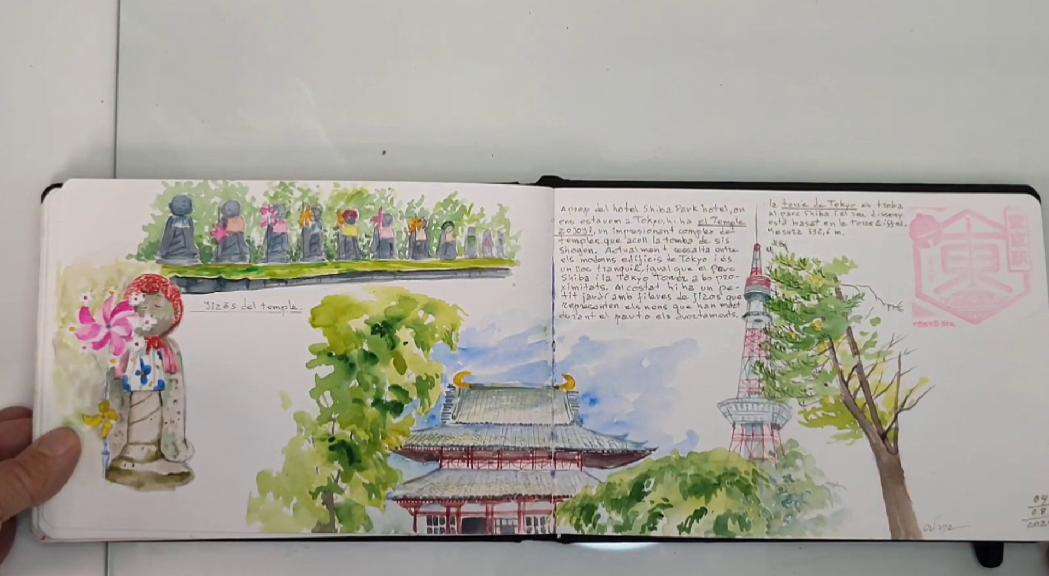 Jizos del temple
A prop del hotel Shiba Park hotel, on
ens estavem a Tokyo hi ha el Temple
Zojoji, un impressionant complex de
temples que acull la tomba de sis
shogun. Actualment ressalta entre
els moderns edificis de Tokyo i és
un lloc tranquil, igual que el parc
Shiba i la Tokyo Tower, a bo pro-
ximitats. Al costat hi ha un pe-
tit jardí amb fileres de Jizos que
representen els nens que han mort
durant el part o els avortaments.
la torre de Tokyo es troba
al parc Shiba i el seu disseny
està basat en la Torre Eiffel.
Mesura 332,6 m.
東